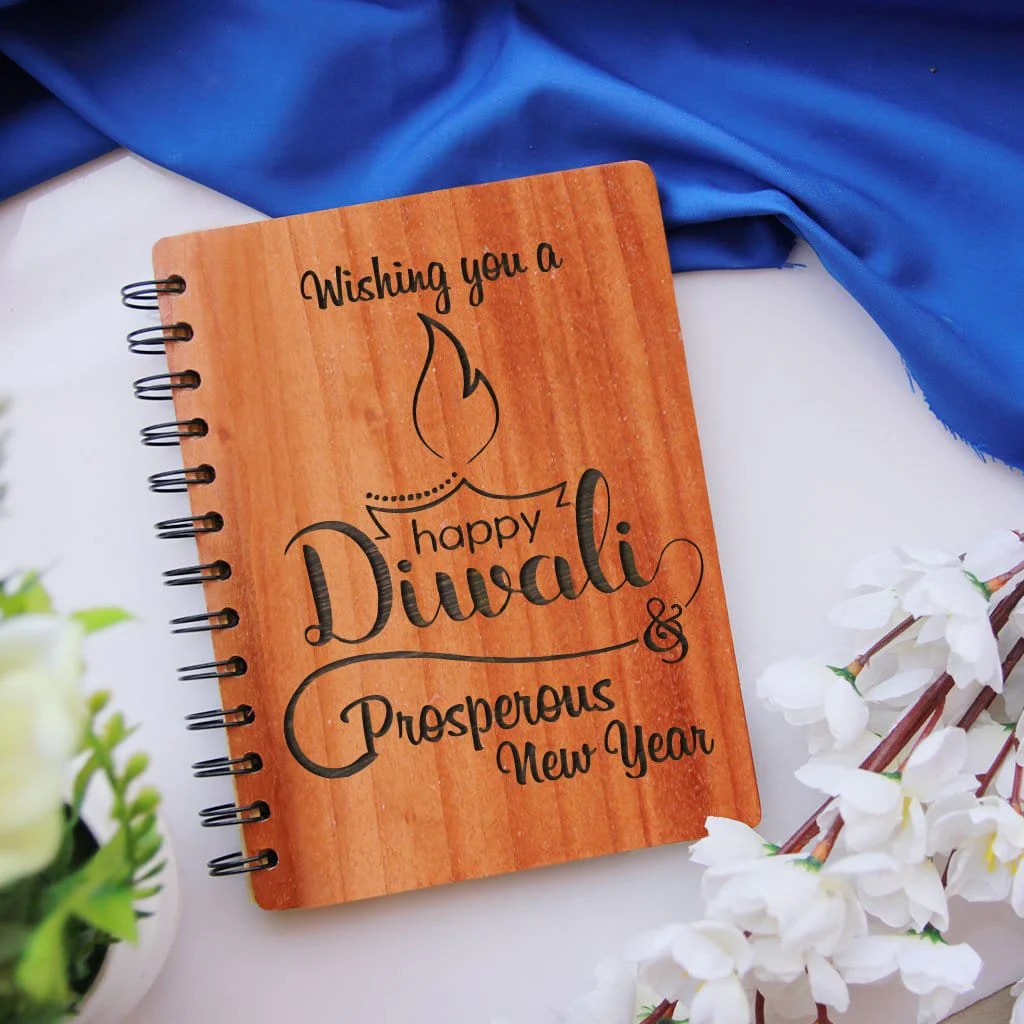 Wishing you a
happy
Diwali
&
Prosperous
New Year